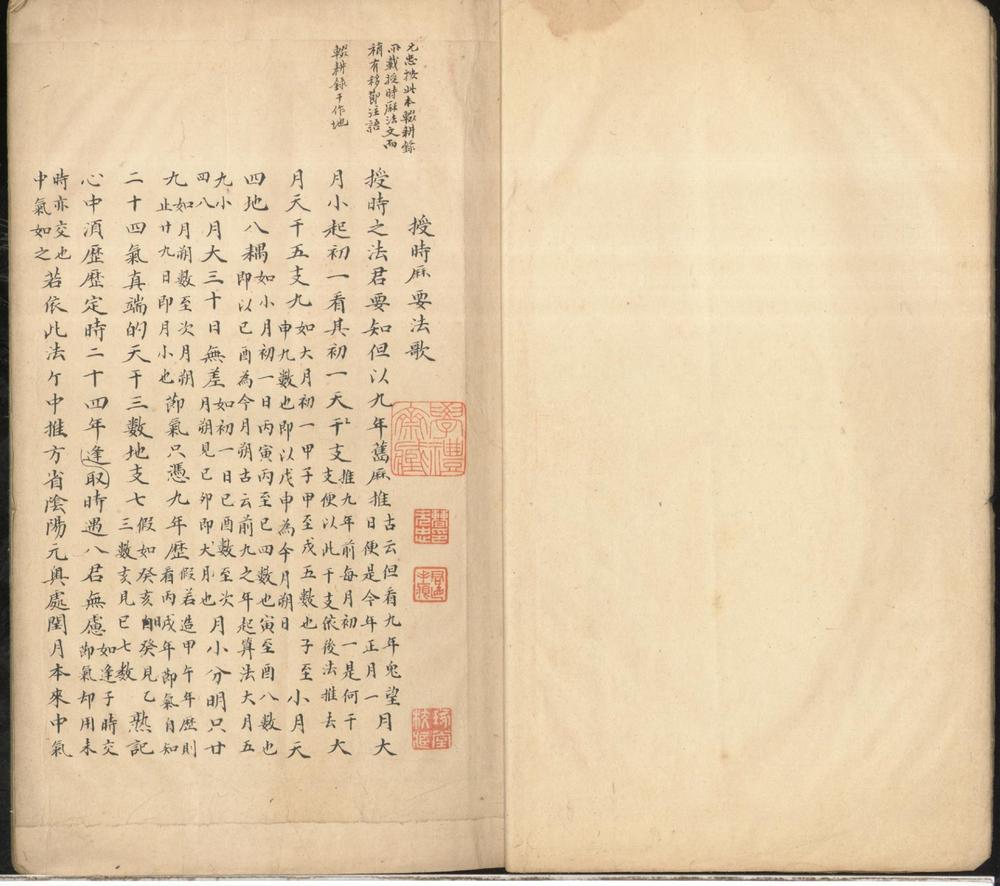 元忠按此本輟耕錄
所載授時厤法文而
稍有移節注語
輟耕錄干作地
授時厤要法歌
授時之法君要知但以九年舊厤推古云但看九年兔望日便是今年正月一月大
月小起初一看其初一天干支推九年前每月初一是何干支便以此干支依後法推去大
月天干五支九如大月初一甲子甲至戌五數也子至申九數也即以戊申為今月朔日小月天
四地八耦如小月初一日丙寅丙至巳四數也寅至酉八數也即以已酉為今月朔古云前九之年起算法大月五
九小四八月大三十日無差如初一日已酉數至次月朔見已卯即大月也月小分明只廿
九如月朔數至次月朔止廿九日即月小也節氣只憑九年歷假若造甲午年歷則看丙戌年節氣自知
二十四氣真端的天干三數地支七假如癸亥自癸見乙三數亥見巳七數熟記
心中須歷歷定時二十四年逢取時遇八君無慮如逢子時交節氣却用未
時亦交也中氣如之若依此法ケ中推方省陰陽元奧處閏月本來中氣
學禮齋藏
曹元忠印